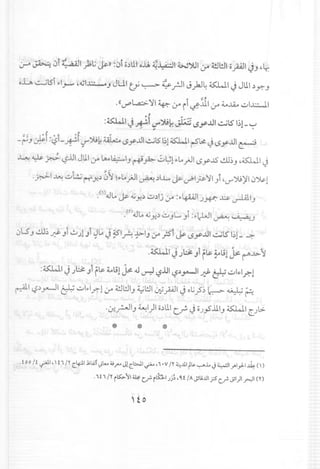 بهاء وفي الفقرة الثالثة من اللائحة التنفيذية لهذه المادة أن: «على ناظر القضية أن يتحقق من
وجود المال في المملكة بالطرق الشرعية حسب نوع المال ومستنداته، سواء أكانت هذه
المستندات مقدمة من المدعي أم من جهة الاختصاص».
ب- إذا كانت الدعوى تتعلق بإفلاس أُشهر في المملكة:
فتسمع الدعوى في محاكم المملكة إذا كانت الدعوى متعلقة بإفلاس أُشهر -أي: أُعلن وتم-
في المملكة، وذلك كدعوى الغرماء إثبات حقوقهم واستيفاءها من المال الذي حُجز عليه بعد
إعلان الإفلاس، أو الاعتراض على سداد بعض الغرماء؛ لأن ديونهم نشأت بعد الحجز.
والمفلس عند جمهور الفقهاء: من زادت ديونه على ماله(١).
ويضيف بعض العلماء: أو ساوت ديونه ماله(٢).
جـ- إذا كانت الدعوى على أكثر من واحدٍ بشراكةٍ في مالٍ أو إرث أو غير ذلك وكان
لأحدهم محلّ إقامة عامّ أو مختار في المملكة.
إجراءات تبليغ غير السعودي الذي ليس له محلّ إقامة عامّ أو مختار في المملكة:
يتمّ تبليغه حسبما ذكرناه في الفقرتين الثانية والثالثة من إجراءات تبليغ السعودي المقيم
خارج المملكة والمذكورة في شرح المادة الرابعة والعشرين.
(١) عِقْد الجواهر الثمينة في مذهب عالم المدينة ٢/ ٦٠٧، مغني المحتاج إلى معرفة معاني ألفاظ المنهاج ٢/ ١٤٦، المغني ٤/ ٤٥٥.
(٢) البحر الرائق شرح كنز الدقائق ٨/ ٩٤، دُرَر الحكّام شرح مجلة الأحكام ٢/ ٦٤٦.
١٤٥